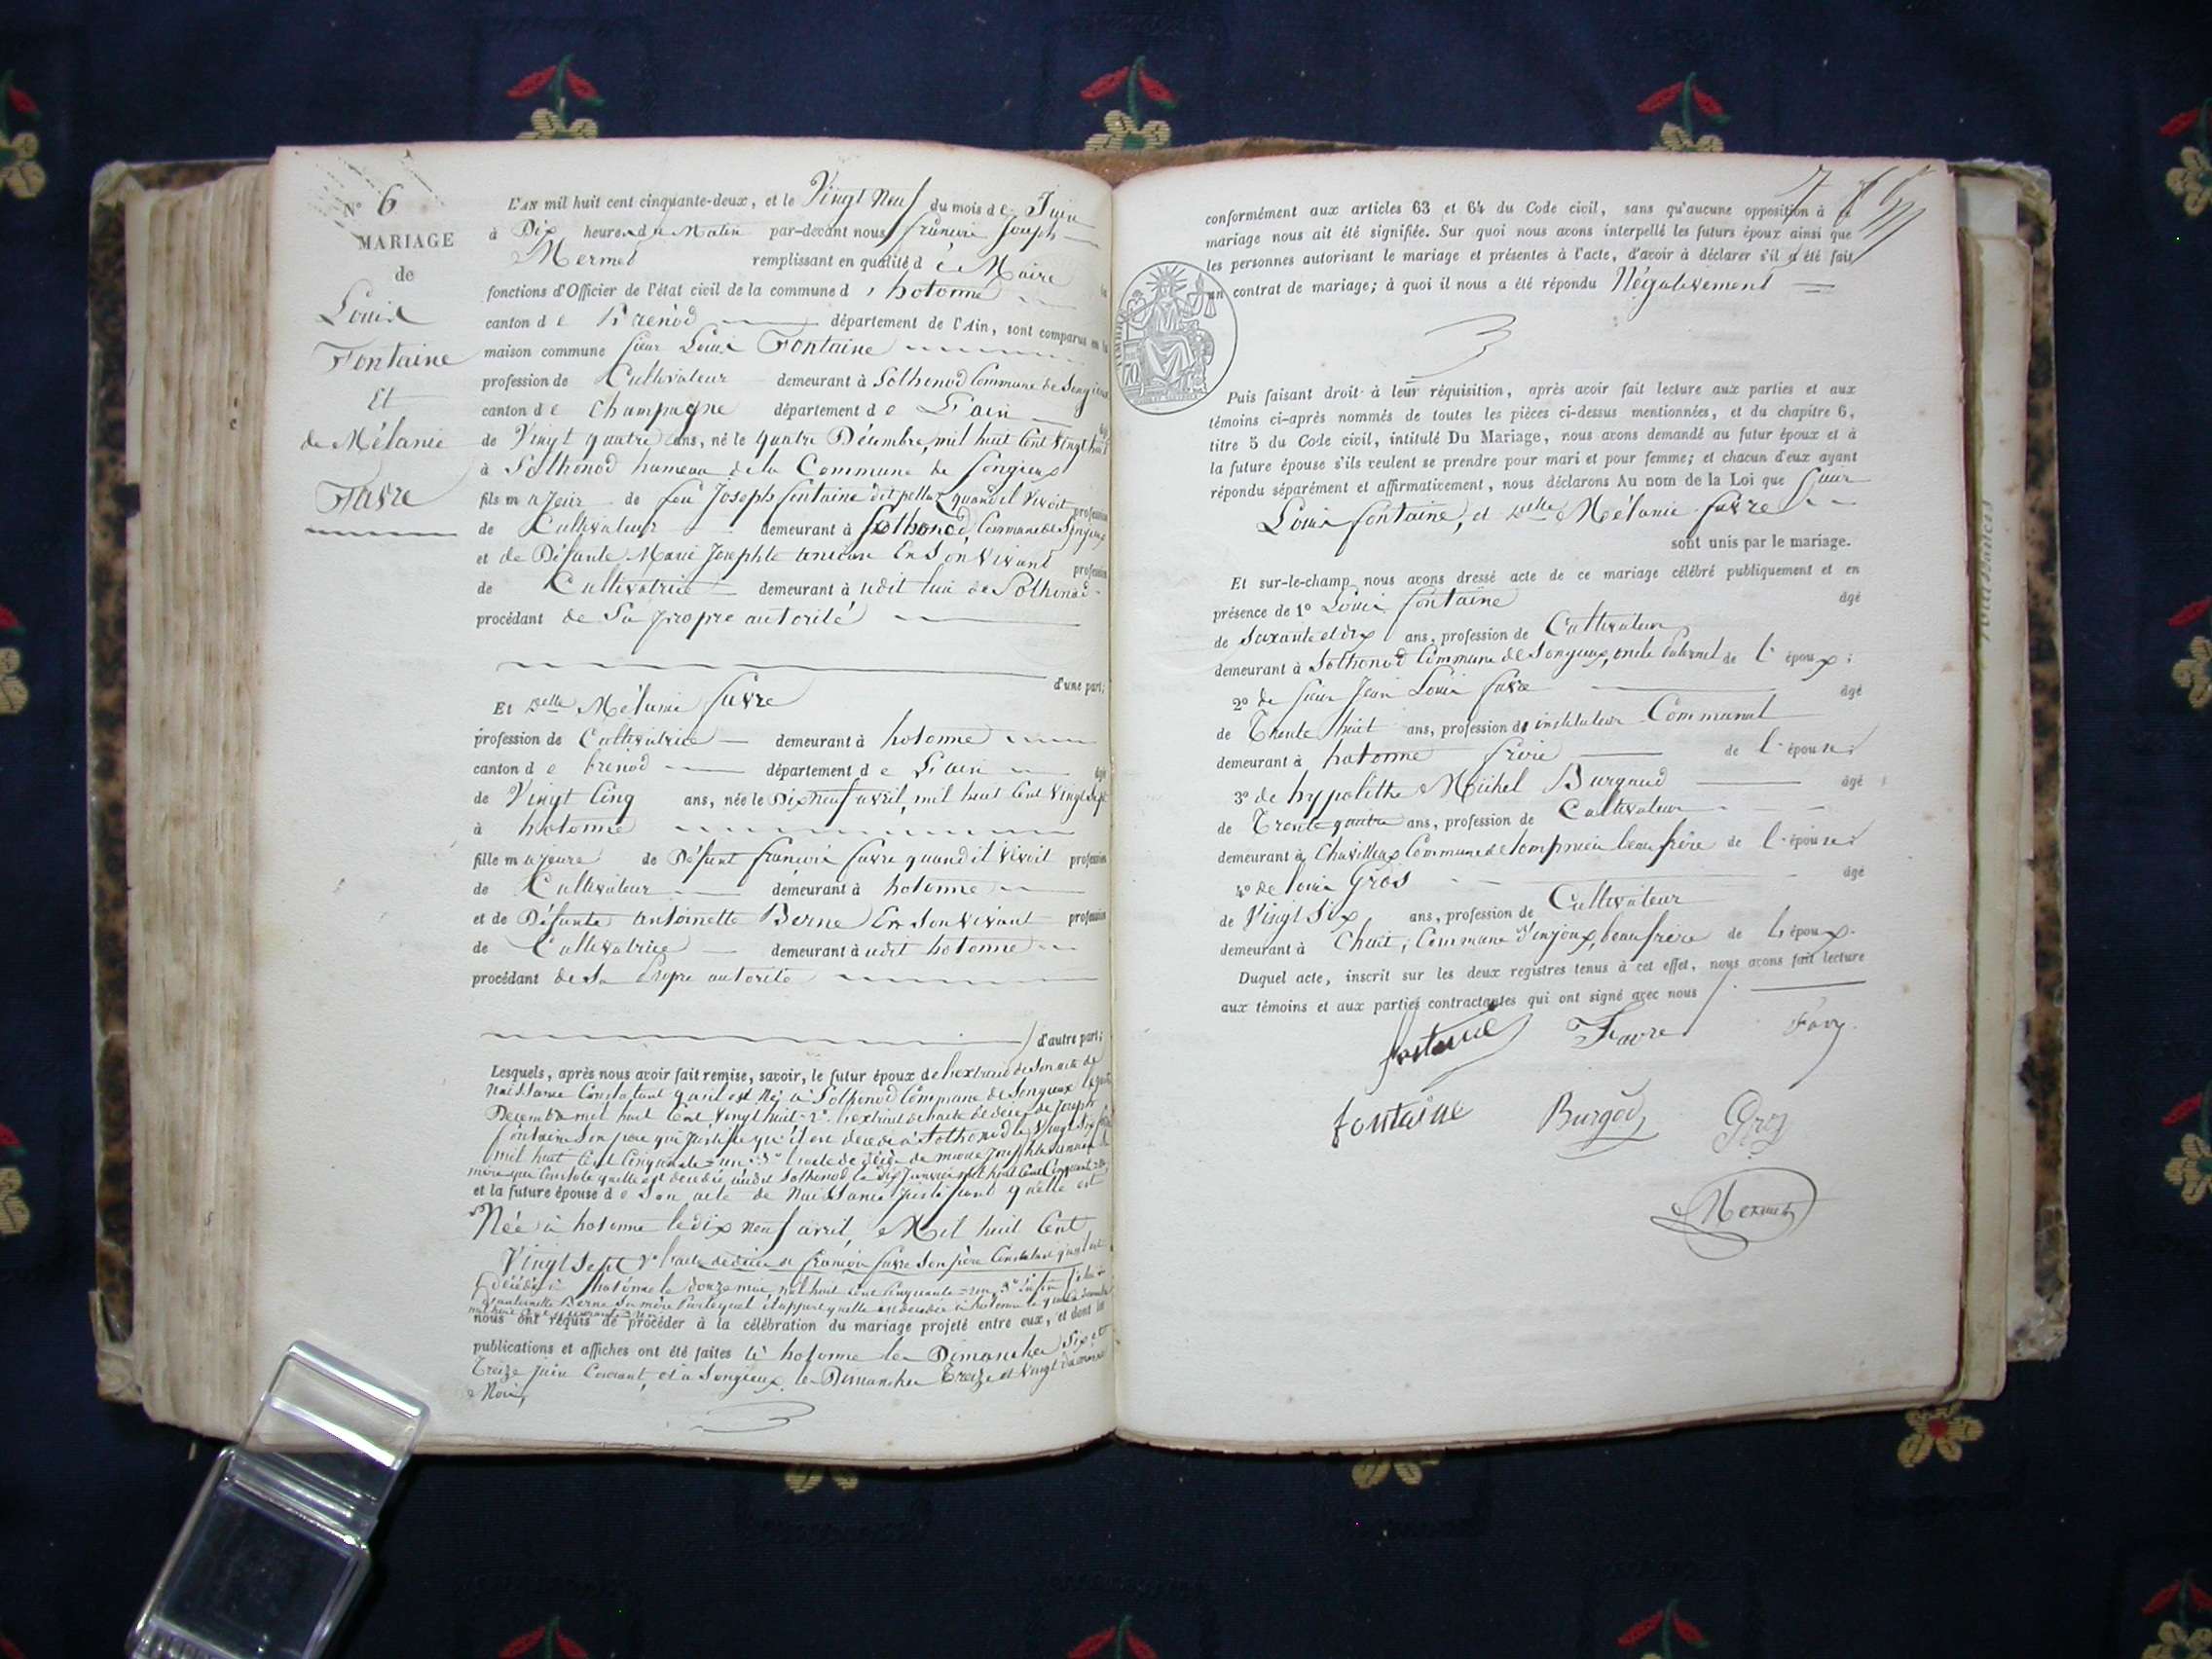 N° 6
MARIAGE
de
Louis
Fontaine
Et
de Mélanie
Favre
L'AN mil huit cent cinquante-deux, et le Vingt Neuf du mois de Juin
à Dix heures du Matin par-devant nous françois Joseph
Mermet remplissant en qualité de Maire les
fonctions d'Officier de l'état civil de la commune d'hotonne
canton de Brénod département de l'Ain, sont comparus en la
maison commune sieur Louis Fontaine
profession de Cultivateur demeurant à Sothonod Commune de Songieux
canton de Champagne département de L'ain âgé
de Vingt quatre ans, né le quatre Décembre, mil huit Cent Vingt huit
à Sothonod hameau de la Commune de Songieux
fils majeur de feu Joseph fontaine dit quand il vivoit profession
de Cultivateur demeurant à Sothonod, Commune de Songieux
et de Défunte Marie Josephte En Son Vivant profession
de Cultivatrice demeurant à udit lieu de Sothonod
procédant de Sa propre autorité
d'une part;
Et Delle Mélanie favre
profession de Cultivatrice demeurant à hotonne
canton de brénod département de L'ain âgé
de Vingt Cinq ans, née le Dix Neuf avril, mil huit Cent Vingt Sept
à hotonne
fille majeure de Défunt françois favre quand il vivoit profession
de Cultivateur demeurant à hotonne
et de Défunte antoinette Berne En Son vivant profession
de Cultivatrice demeurant à udit hotonne
procédant de Sa propre autorité
d'autre part;
Lesquels, après nous avoir fait remise, savoir, le futur époux de l'extrait de Son acte de
Naissance Constatant qu'il est Né à Sothonod Commune de Songieux le quatre
Décembre mil huit Cent Vingt huit 2° l'extrait de l'acte de décès de Joseph
fontaine Son père qui justifie qu'il est décédé à Sothonod le Vingt Six
mil huit Cent Cinquante un 3° l'acte de décès de marie Josephte Sa
mère qui Constate qu'elle est décédée audit Sothonod le dix Janvier mil huit Cent Cinquante
et la future épouse de Son acte de Naissance justifiant qu'elle est
Née à hotonne le dix neuf avril, Mil huit Cent
Vingt Sept 2° l'acte de décès de françois favre Son père Constatant qu'il est
décédé à hotonne le douze mai mil huit cent Cinquante un 3° enfin
d'antoinette Berne Sa mère Par lequel il appert qu'elle est décédée à hotonne le
nous ont requis de procéder à la célébration du mariage projeté entre eux, et dont les
publications et affiches ont été faites à hotonne les Dimanches Six et
Treize Juin Courant, et à Songieux les Dimanches Treize et Vingt du même
Mois,
conformément aux articles 63 et 64 du Code civil, sans qu'aucune opposition à ce
mariage nous ait été signifiée. Sur quoi nous avons interpellé les futurs époux ainsi que
les personnes autorisant le mariage et présentes à l'acte, d'avoir à déclarer s'il a été fait
un contrat de mariage; à quoi il nous a été répondu Négativement
Puis faisant droit à leur réquisition, après avoir fait lecture aux parties et aux
témoins ci-après nommés de toutes les pièces ci-dessus mentionnées, et du chapitre 6,
titre 5 du Code civil, intitulé Du Mariage, nous avons demandé au futur époux et à
la future épouse s'ils veulent se prendre pour mari et pour femme; et chacun d'eux ayant
répondu séparément et affirmativement, nous déclarons Au nom de la Loi que Sieur
Louis fontaine, et Delle Mélanie favre
sont unis par le mariage.
Et sur-le-champ nous avons dressé acte de ce mariage célébré publiquement et en
présence de 1° Louis fontaine âgé
de Soixante et dix ans, profession de Cultivateur
demeurant à Sothonod Commune de Songieux, oncle Paternel de l'époux;
2° de sieur Jean Louis favre âgé
de Trente huit ans, profession d'instituteur Communal
demeurant à hotonne frère de l'épouse;
3° de hypolithe Michel Burgaud âgé
de Trente quatre ans, profession de Cultivateur
demeurant à Chavillieux Commune de lompnieu beau frère de l'épouse;
4° de louis Gros âgé
de Vingt Six ans, profession de Cultivateur
demeurant à Commune d'injoux, beau frère de L'époux.
Duquel acte, inscrit sur les deux registres tenus à cet effet, nous avons fait lecture
aux témoins et aux parties contractantes qui ont signé avec nous
fontaine Favre
fontaine Burgod Gros
Mermet